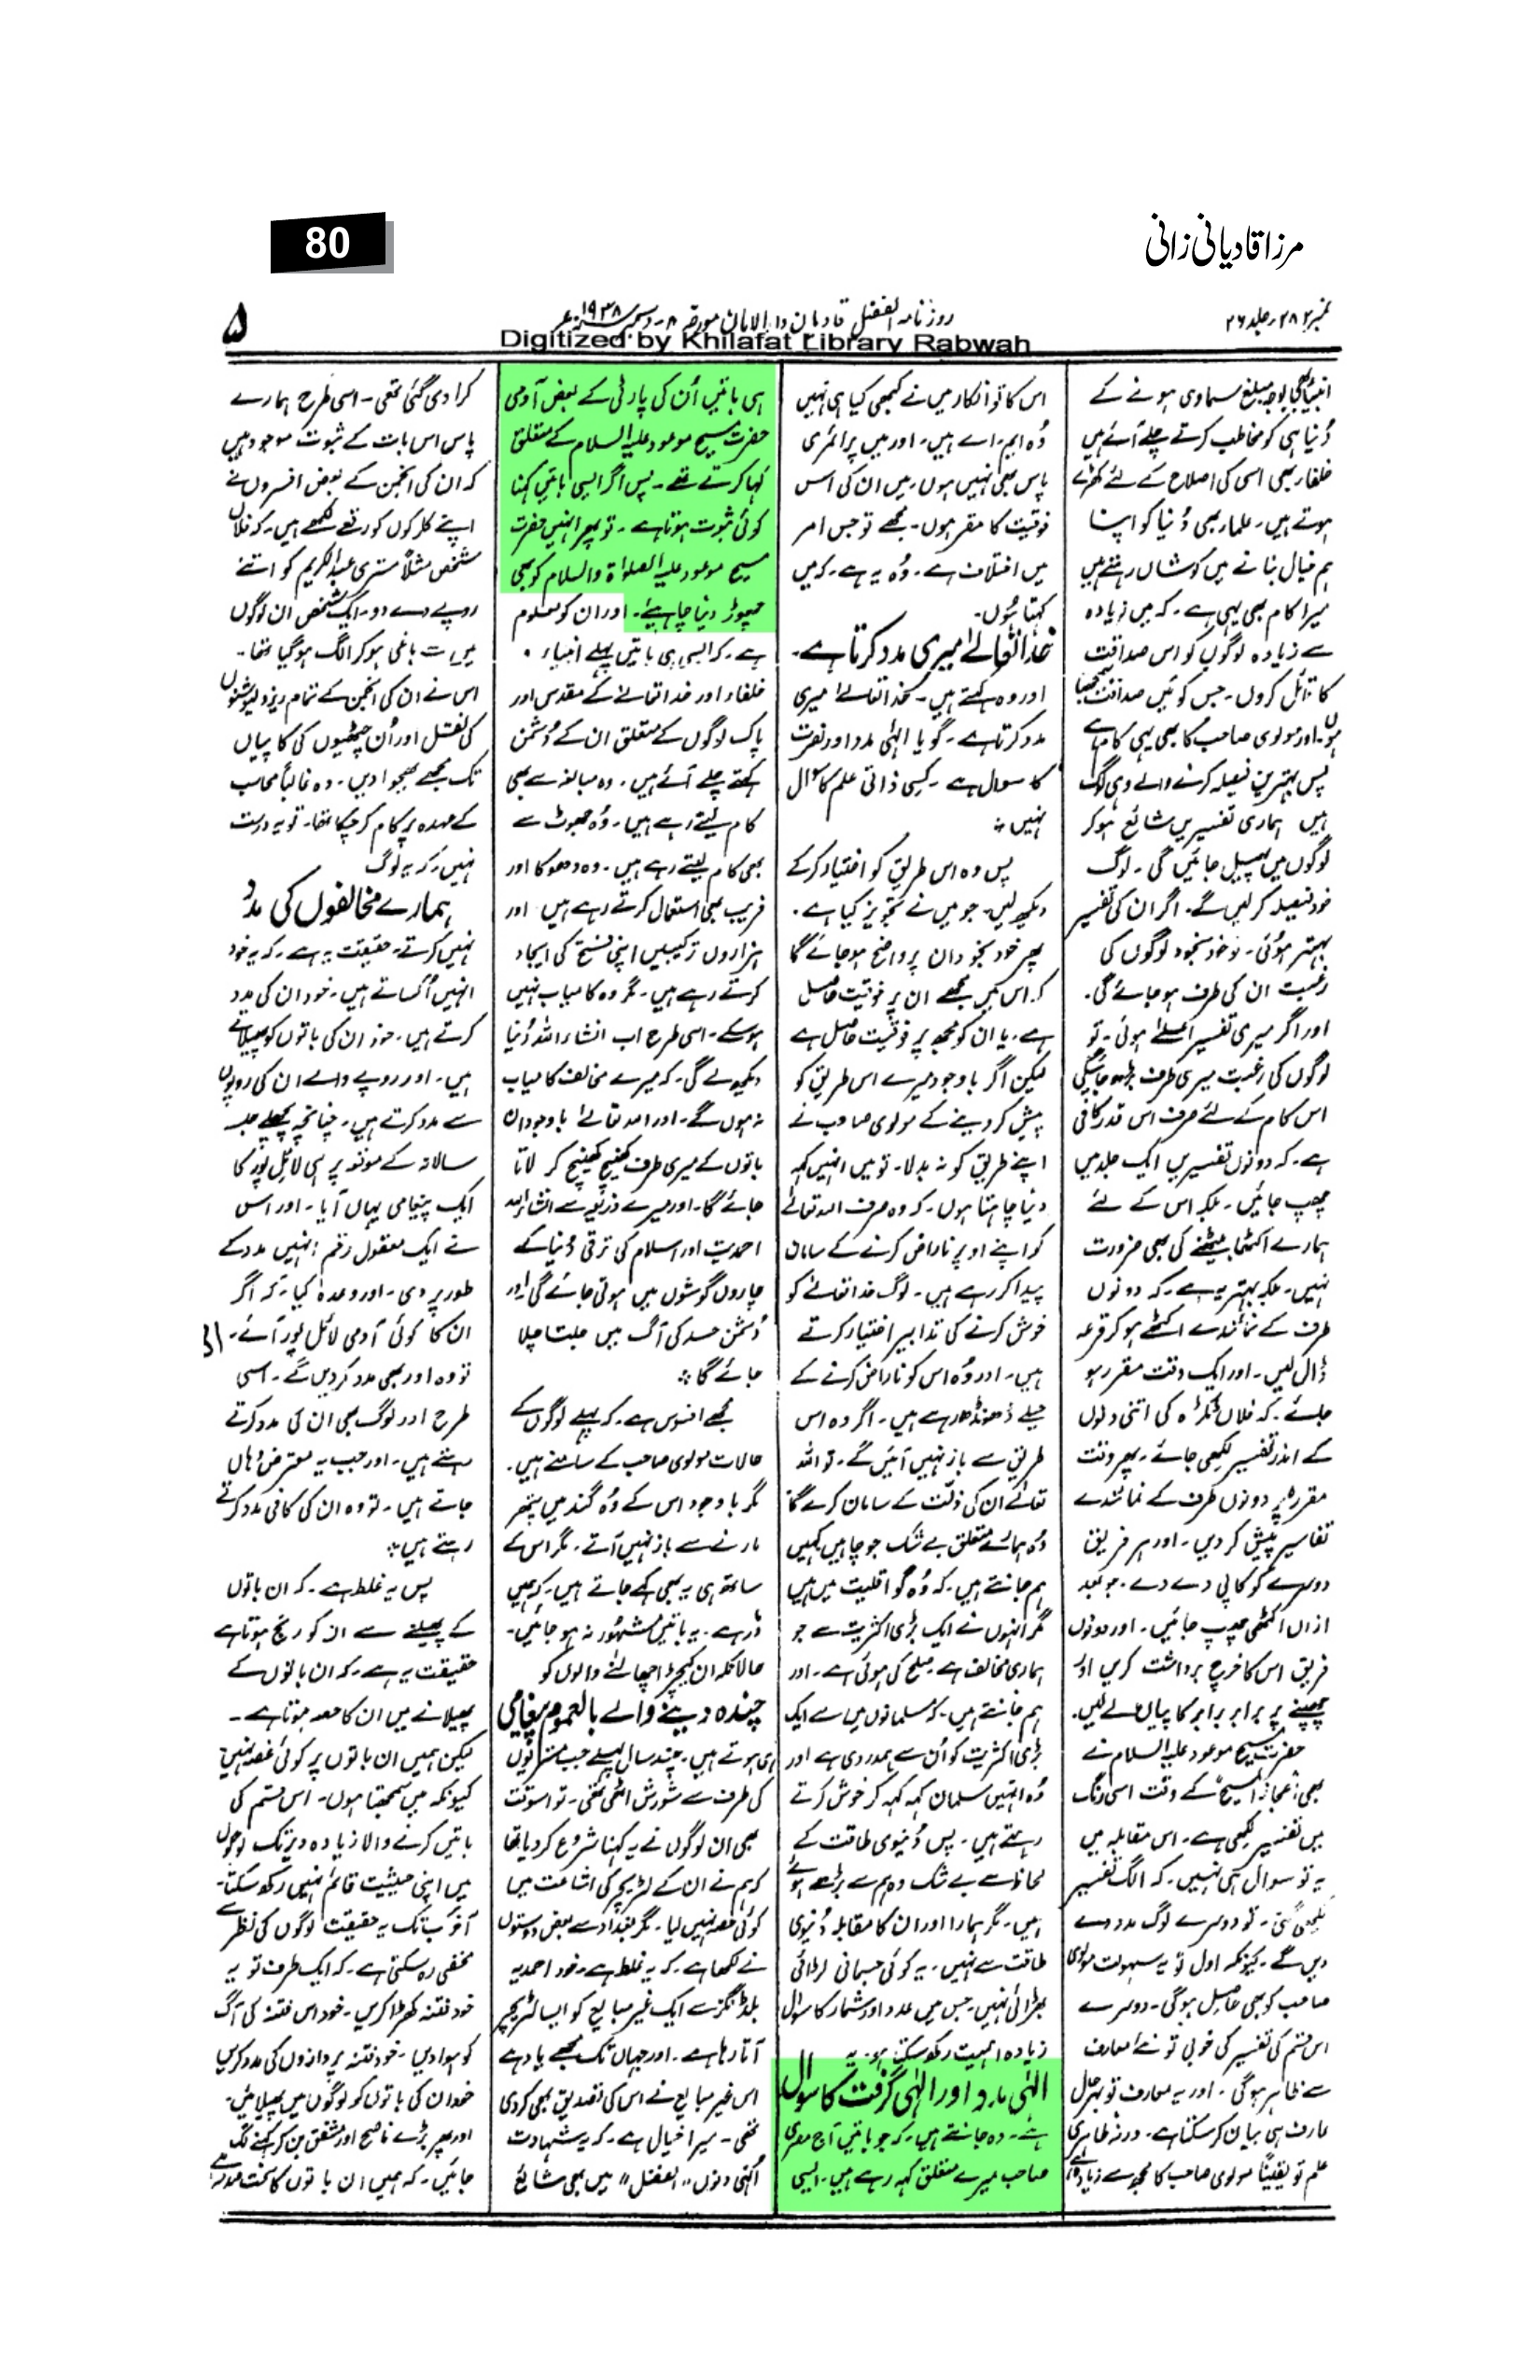 مرزا قادیانی زانی
80
نمبر ۲۸۲ جلد ۲۶
روزنامہ الفضل قادیان دارالامان مورخہ ۸ دسمبر ۱۹۳۸ء
۵
Digitized by Khilafat Library Rabwah
انبیاء بھی بوجہ مبلغ سماوی ہونے کے
دنیا ہی کو مخاطب کرتے چلے آئے ہیں
خلفاء بھی اسی کی اصلاح کے لئے کھڑے
ہوتے ہیں۔ علماء بھی دنیا کو اپنا
ہم خیال بنانے میں کوشاں رہتے ہیں
میرا کام بھی یہی ہے۔ کہ میں زیادہ
سے زیادہ لوگوں کو اس صداقت
کا قائل کروں۔ جس کو میں صداقت سمجھتا
ہوں۔ اور مولوی صاحب کا بھی یہی کام ہے
پس بہترین فیصلہ کرنے والے وہی لوگ
ہیں ہماری تفسیریں شائع ہو کر
لوگوں میں پھیل جائیں گی۔ لوگ
خود فیصلہ کر لیں گے۔ اگر ان کی تفسیر
بہتر ہوئی۔ تو خود بخود لوگوں کی
رغبت ان کی طرف ہو جائے گی۔
اور اگر میری تفسیر اعلےٰ ہوئی۔ تو
لوگوں کی رغبت میری طرف بڑھ جائیگی
اس کام کے لئے صرف اس قدر کافی
ہے۔ کہ دونوں تفسیریں ایک جلد میں
چھپ جائیں۔ بلکہ اس کے لئے
ہمارے اکٹھا بیٹھنے کی بھی ضرورت
نہیں۔ بلکہ بہتر یہ ہے۔ کہ دونوں
طرف کے نمائندے اکٹھے ہو کر قرعہ
ڈال لیں۔ اور ایک وقت مقرر ہو
جائے۔ کہ فلاں ٹکڑہ کی اتنی دنوں
کے اندر تفسیر لکھی جائے۔ پھر وقت
مقررہ پر دونوں طرف کے نمائندے
تفاسیر پیش کر دیں۔ اور ہر فریق
دوسرے کو کاپی دے دے۔ جو بعد
ازاں اکٹھی چھپ جائیں۔ اور دونوں
فریق اس کا خرچ برداشت کریں اور
چھپنے پر برابر برابر کاپیاں لے لیں۔
حضرت مسیح موعود علیہ السلام نے
بھی اعجاز المسیح کے وقت اسی رنگ
میں تفسیر لکھی ہے۔ اس مقابلہ میں
یہ تو سوال ہی نہیں۔ کہ الگ تفسیر
لکھی گئی۔ تو دوسرے لوگ مدد دے
دیں گے۔ کیونکہ اول تو یہ سہولت مولوی
صاحب کو بھی حاصل ہوگی۔ دوسرے
اس قسم کی تفسیر کی خوبی تو نئے معارف
سے ظاہر ہوگی۔ اور یہ معارف تو بہرحال
عارف ہی بیان کر سکتا ہے۔ ورنہ ظاہری
علم تو یقیناً مولوی صاحب کا مجھ سے زیادہ ہے
اس کا تو انکار میں نے کبھی کیا ہی نہیں
وہ ایم۔ اے ہیں۔ اور میں پرائمری
پاس بھی نہیں ہوں۔ میں ان کی اس
فوقیت کا مقر ہوں۔ مجھے تو جس امر
میں اختلاف ہے۔ وہ یہ ہے۔ کہ میں
کہتا ہوں۔
خدا تعالےٰ میری مدد کرتا ہے۔
اور وہ کہتے ہیں۔ خدا تعالےٰ میری
مدد کرتا ہے۔ گویا الٰہی مدد اور نصرت
کا سوال ہے۔ کسی ذاتی علم کا سوال
نہیں؛
پس وہ اس طریق کو اختیار کر کے
دیکھ لیں۔ جو میں نے تجویز کیا ہے۔
پھر خود بخود ان پر واضح ہو جائے گا
کہ اس میں مجھے ان پر فوقیت حاصل
ہے۔ یا ان کو مجھ پر فوقیت حاصل ہے
لیکن اگر باوجود میرے اس طریق کو
پیش کر دینے کے مولوی صاحب نے
اپنے طریق کو نہ بدلا۔ تو میں انہیں کہہ
دینا چاہتا ہوں۔ کہ وہ صرف اللہ تعالےٰ
کو اپنے اوپر ناراض کرنے کے سامان
پیدا کر رہے ہیں۔ لوگ خدا تعالےٰ کو
خوش کرنے کی تدابیر اختیار کرتے
ہیں۔ اور وہ اس کو ناراض کرنے کے
حیلے ڈھونڈ رہے ہیں۔ اگر وہ اس
طریق سے باز نہیں آئیں گے۔ تو اللہ
تعالےٰ ان کی ذلت کے سامان کرے گا
وہ ہمارے متعلق بے شک جو چاہیں کہیں
ہم جانتے ہیں۔ کہ وہ گو اقلیت میں ہیں
مگر انہوں نے ایک بڑی اکثریت سے جو
ہماری مخالف ہے۔ صلح کی ہوئی ہے۔ اور
ہم جانتے ہیں۔ کہ مسلمانوں میں سے ایک
بڑی اکثریت کو ان سے ہمدردی ہے اور
وہ انہیں مسلمان کہہ کہہ کر خوش کرتے
رہتے ہیں۔ پس دنیوی طاقت کے
لحاظ سے بے شک وہ ہم سے بڑھے ہوئے
ہیں۔ مگر ہمارا اور ان کا مقابلہ دنیوی
طاقت سے نہیں۔ یہ کوئی جسمانی لڑائی
بھڑائی نہیں۔ جس میں عدد اور شمار کا سوال
زیادہ اہمیت رکھ سکتا ہو۔ یہ
الٰہی مدد اور الٰہی گرفت کا سوال
ہے۔ وہ جانتے ہیں۔ کہ جو باتیں آج مصری
صاحب میرے متعلق کہہ رہے ہیں۔ ایسی
ہی باتیں اُن کی پارٹی کے بعض آدمی
حضرت مسیح موعود علیہ السلام کے متعلق
کہا کرتے تھے۔ پس اگر ایسی باتیں کہنا
کوئی ثبوت ہوتا ہے۔ تو پھر انہیں حضرت
مسیح موعود علیہ الصلوٰۃ والسلام کو بھی
چھوڑ دینا چاہیئے۔ اور ان کو معلوم
ہے۔ کہ ایسی ہی باتیں پہلے انبیاء۔
خلفاء اور خدا تعالےٰ کے مقدس اور
پاک لوگوں کے متعلق ان کے دشمن
کہتے چلے آئے ہیں۔ وہ مبالغہ سے بھی
کام لیتے رہے ہیں۔ وہ جھوٹ سے
بھی کام لیتے رہے ہیں۔ وہ دھوکا اور
فریب بھی استعمال کرتے رہے ہیں اور
ہزاروں ترکیبیں اپنی فتح کی ایجاد
کرتے رہے ہیں۔ مگر وہ کامیاب نہیں
ہو سکے۔ اسی طرح اب انشاء اللہ دنیا
دیکھ لے گی۔ کہ میرے مخالف کامیاب
نہ ہوں گے۔ اور اللہ تعالےٰ باوجود ان
باتوں کے میری طرف کھینچ کھینچ کر لاتا
جائے گا۔ اور میرے ذریعہ سے انشاء اللہ
احمدیت اور اسلام کی ترقی دنیا کے
چاروں گوشوں میں ہوتی جائے گی اور
دشمن حسد کی آگ میں جلتا چلا
جائے گا؛
مجھے افسوس ہے۔ کہ پہلے لوگوں کے
حالات مولوی صاحب کے سامنے ہیں۔
مگر باوجود اس کے وہ گند میں پتھر
مارنے سے باز نہیں آتے۔ مگر اس کے
ساتھ ہی یہ بھی کہے جاتے ہیں۔ کہ ہمیں
ڈر ہے۔ یہ باتیں مشہور نہ ہو جائیں۔
حالانکہ ان کیچڑ اچھالنے والوں کو
چندہ دینے والے بالعموم پیغامی
ہی ہوتے ہیں۔ چند سال پہلے جب مستریوں
کی طرف سے شورش اٹھی تھی۔ تو اسوقت
بھی ان لوگوں نے یہ کہنا شروع کر دیا تھا
کہ ہم نے ان کے لٹریچر کی اشاعت میں
کوئی حصہ نہیں لیا۔ مگر بغداد سے بعض دوستوں
نے لکھا ہے۔ کہ یہ غلط ہے۔ خود احمدیہ
بلڈنگز سے ایک غیر مبایع کو ایسا لٹریچر
آتا رہا ہے۔ اور جہاں تک مجھے یاد ہے
اس غیر مبایع نے اس کی تصدیق بھی کر دی
تھی۔ میرا خیال ہے۔ کہ یہ شہادت
اُنہی دنوں "الفضل" میں بھی شائع
کرا دی گئی تھی۔ اسی طرح ہمارے
پاس اس بات کے ثبوت موجود ہیں
کہ ان کی انجمن کے بعض افسروں نے
اپنے کلرکوں کو رقعے لکھے ہیں۔ کہ فلاں
شخص مثلاً مستری عبدالکریم کو اتنے
روپے دے دو۔ ایک شخص ان لوگوں
میں سے باغی ہو کر الگ ہو گیا تھا۔
اس نے ان کی انجمن کے تمام ریزولیوشنوں
کی نقل اور اُن چٹھیوں کی کاپیاں
تک مجھے بھجوا دیں۔ وہ غالباً محاسب
کے عہدہ پر کام کر چکا تھا۔ تو یہ درست
نہیں۔ کہ یہ لوگ
ہمارے مخالفوں کی مدد
نہیں کرتے۔ حقیقت یہ ہے۔ کہ یہ خود
انہیں اُکساتے ہیں۔ خود ان کی مدد
کرتے ہیں۔ خود ان کی باتوں کو پھیلاتے
ہیں۔ اور روپے والے ان کی روپوں
سے مدد کرتے ہیں۔ چنانچہ پچھلے جلسہ
سالانہ کے موقعہ پر ہی لائل پور کا
ایک پیغامی یہاں آیا۔ اور اس
نے ایک معقول رقم انہیں مدد کے
طور پر دی۔ اور وعدہ کیا۔ کہ اگر
ان کا کوئی آدمی لائل پور آئے۔
تو وہ اور بھی مدد کر دیں گے۔ اسی
طرح اور لوگ بھی ان کی مدد کرتے
رہتے ہیں۔ اور جب یہ معترض وہاں
جاتے ہیں۔ تو وہ ان کی کافی مدد کرتے
رہتے ہیں؛
پس یہ غلط ہے۔ کہ ان باتوں
کے پھیلنے سے ان کو رنج ہوتا ہے
حقیقت یہ ہے۔ کہ ان باتوں کے
پھیلانے میں ان کا حصہ ہوتا ہے۔
لیکن ہمیں ان باتوں پر کوئی غصہ نہیں
کیونکہ میں سمجھتا ہوں۔ اس قسم کی
باتیں کرنے والا زیادہ دیر تک لوگوں
میں اپنی حیثیت قائم نہیں رکھ سکتا۔
آخر کب تک یہ حقیقت لوگوں کی نظر سے
مخفی رہ سکتی ہے۔ کہ ایک طرف تو یہ
خود فتنہ کھڑا کریں۔ خود اس فتنہ کی آگ
کو ہوا دیں۔ خود فتنہ پردازوں کی مدد کریں
خود ان کی باتوں کو لوگوں میں پھیلائیں۔
اور پھر بڑے ناصح اور مشفق بن کر کہنے لگ
جائیں۔ کہ ہمیں ان باتوں کا سخت صدمہ ہے